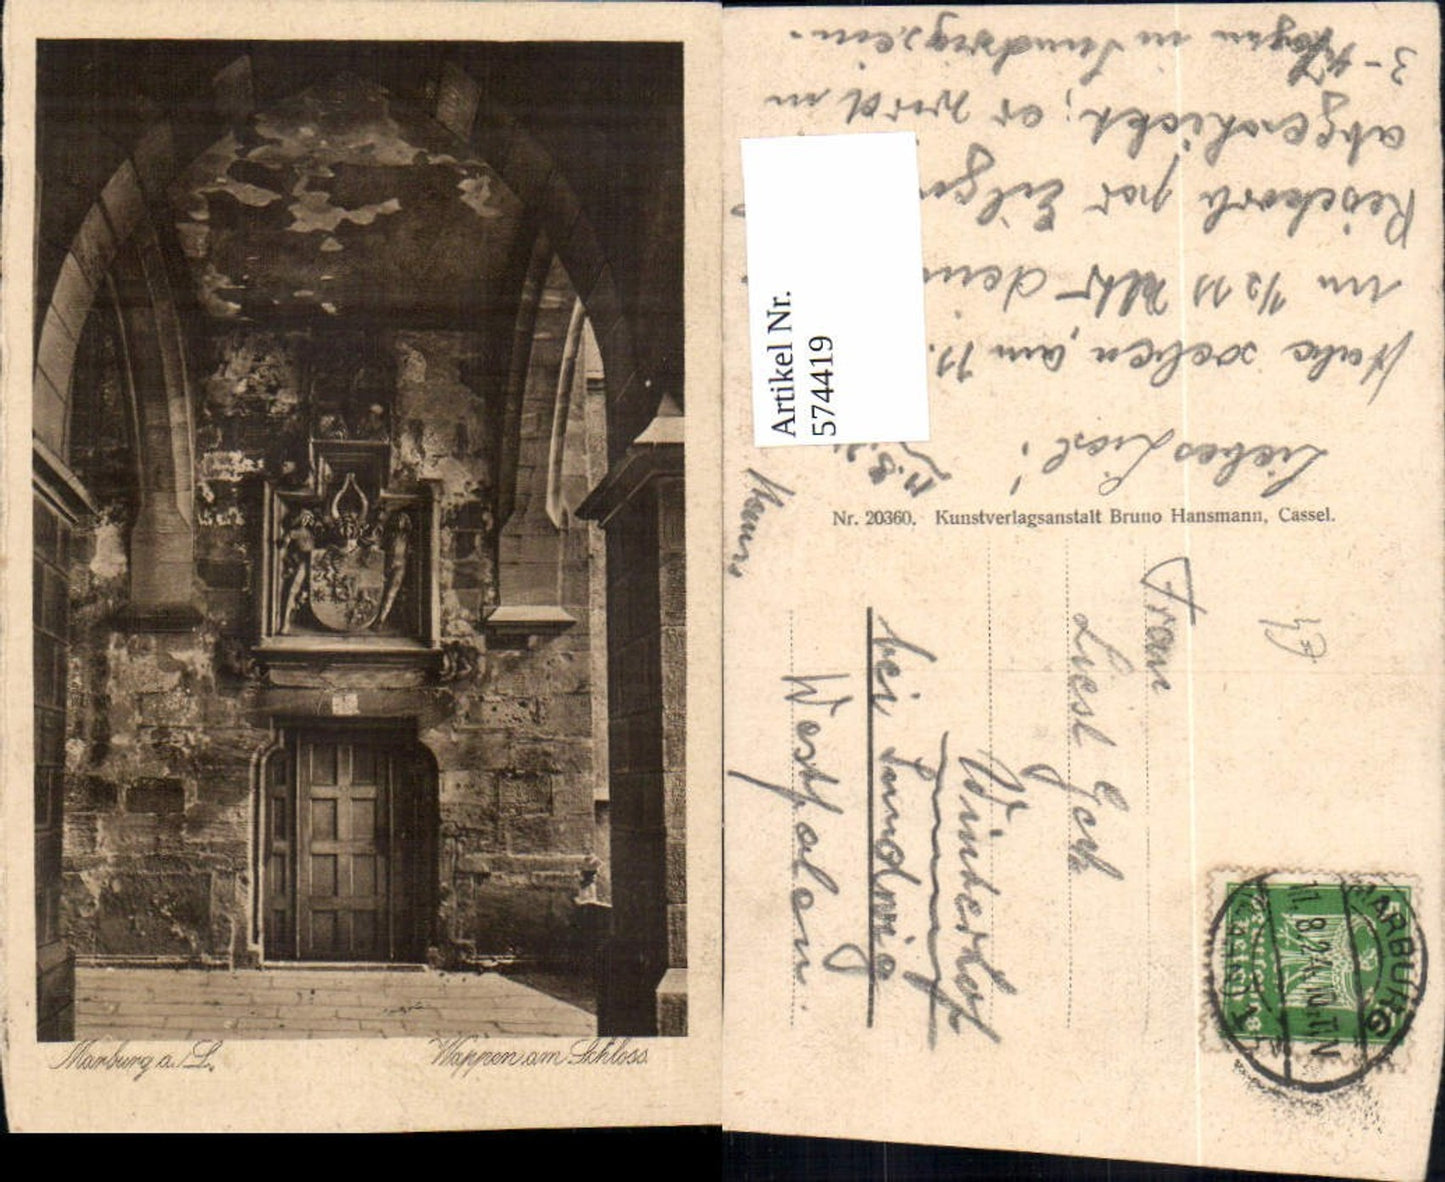 Marburg a./L.
Wappen am Schloss.
Artikel Nr.
574419
Nr. 20360. Kunstverlagsanstalt Bruno Hansmann, Cassel.
Liebes Liesl!
Habe soeben, am 11.
um ½ 11 Uhr dein
Reisekorb per Eilgu
abgeschickt; er wird in
3-4 Tagen in sein.
Frau
Liesl
bei
Westfalen.
MARBURG
11.8.24.10-11V